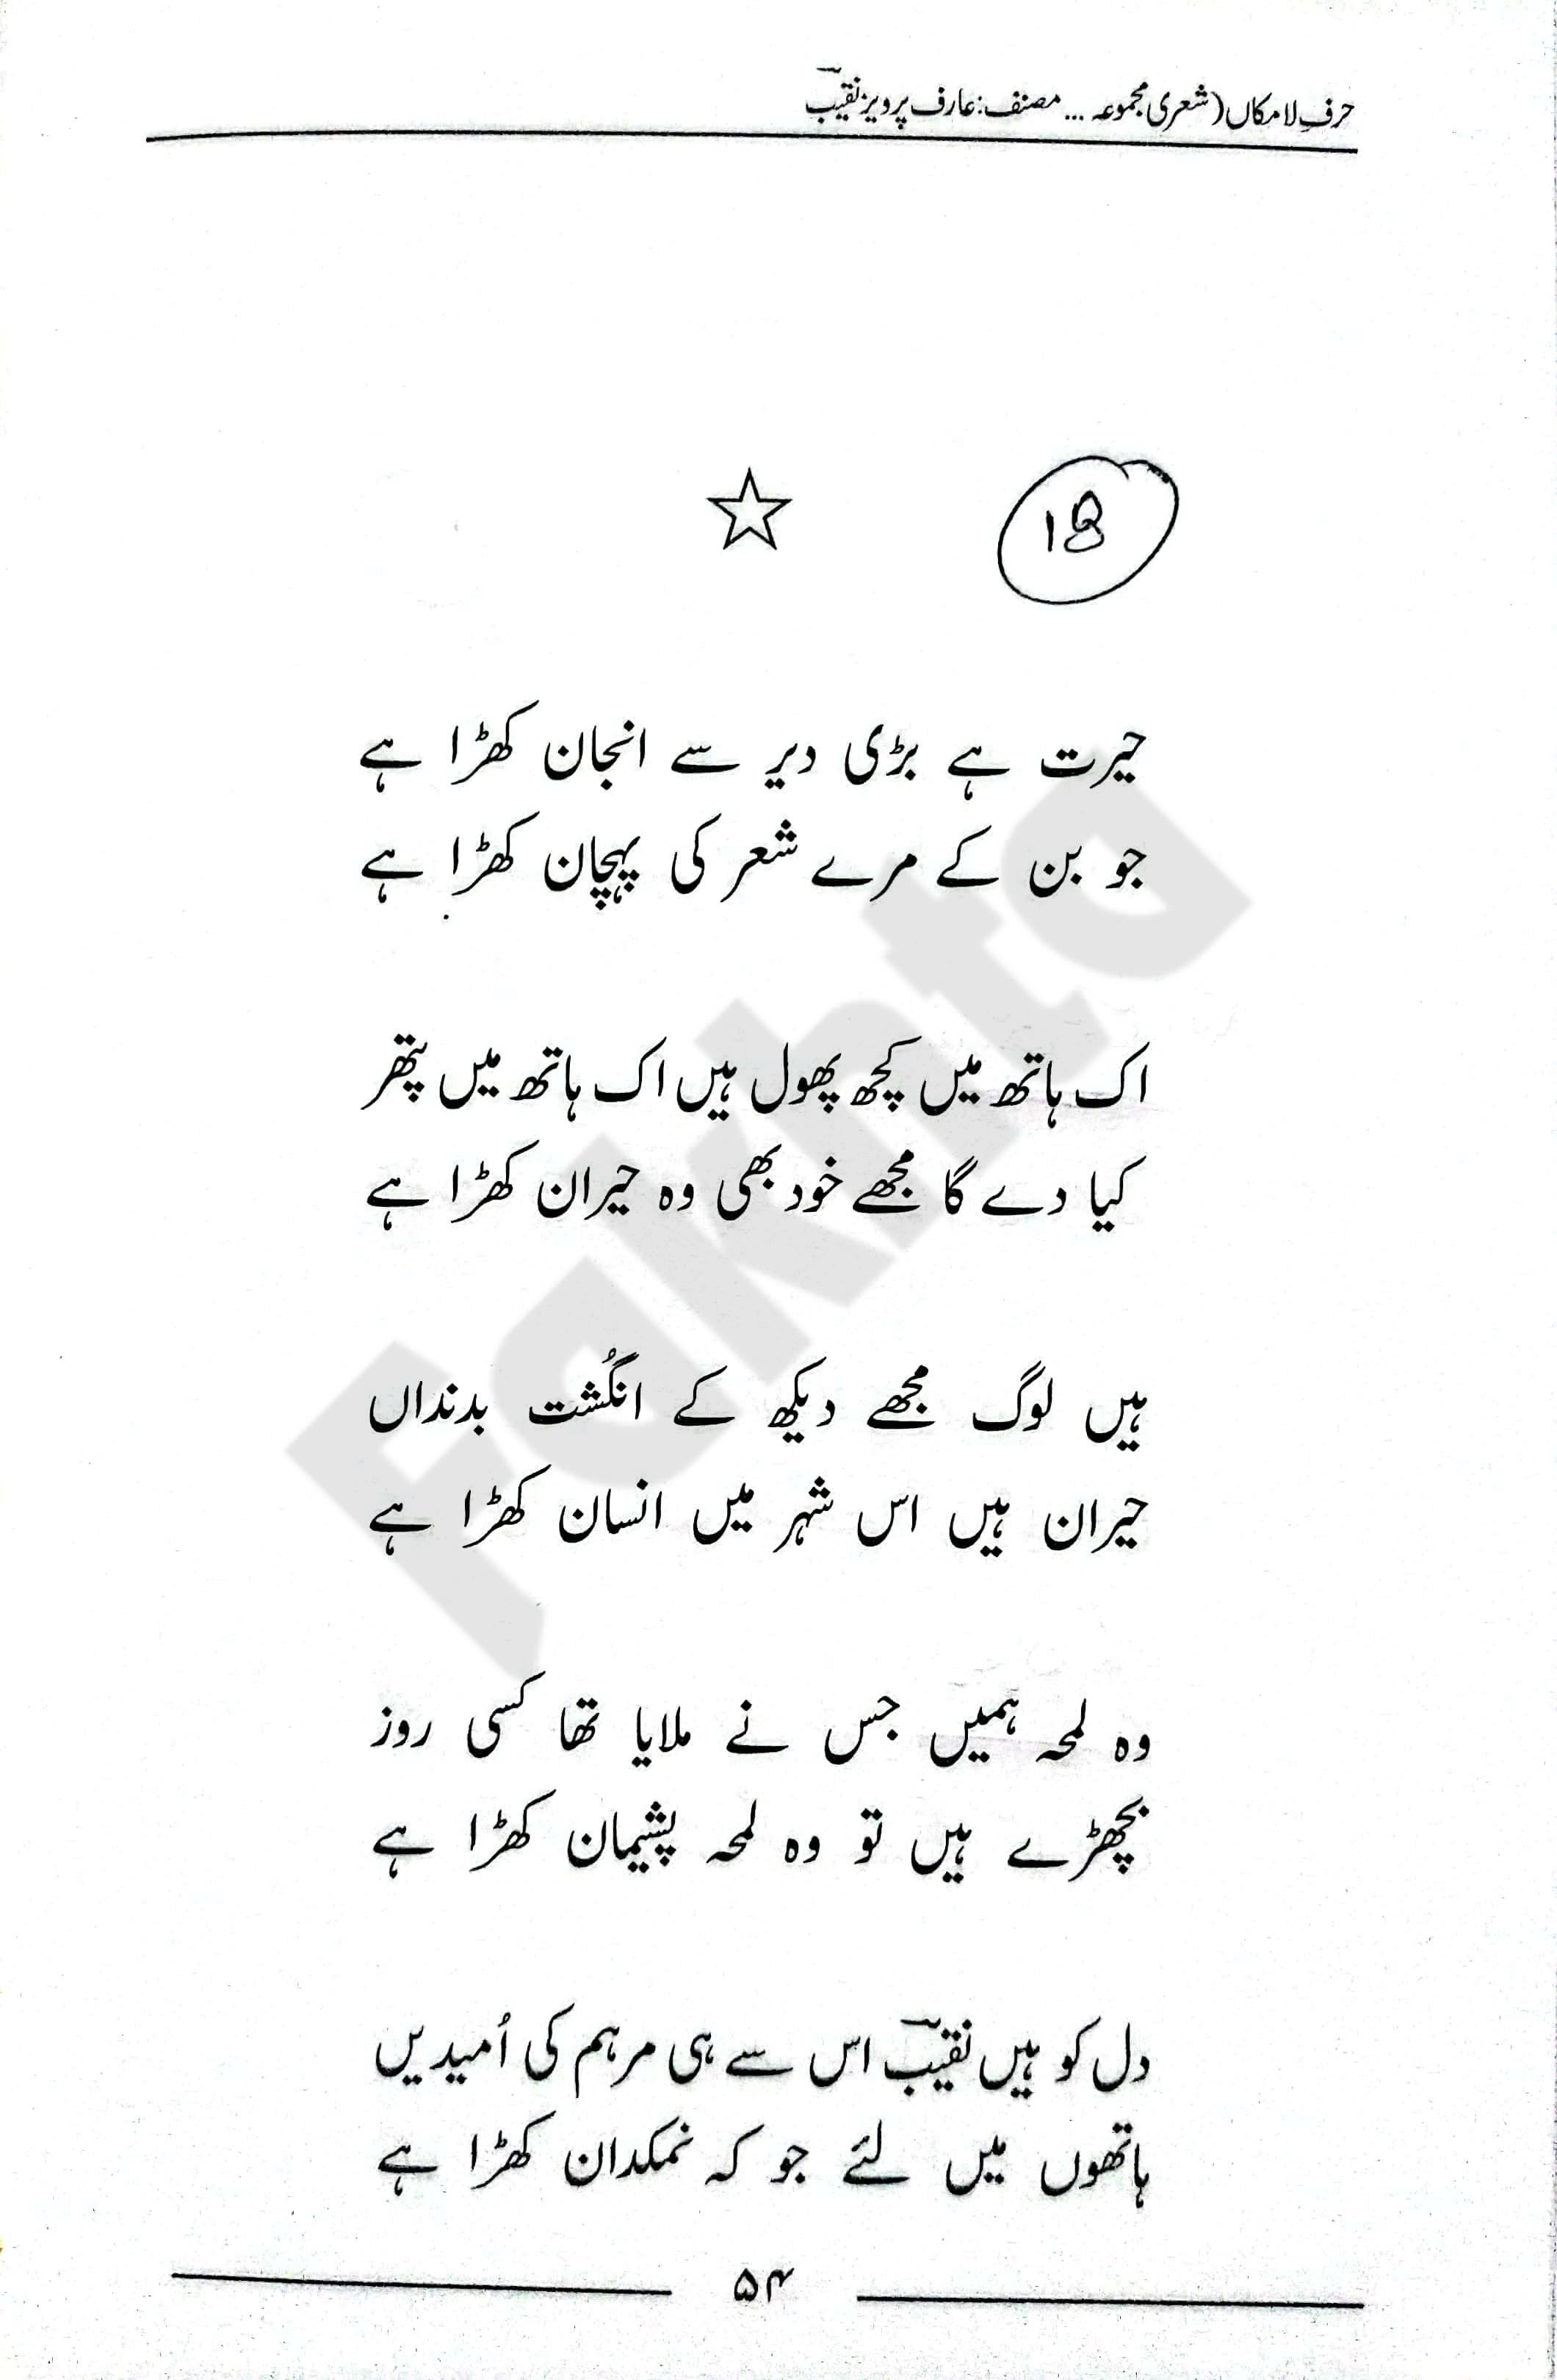 حرفِ لامکاں (شعری مجموعہ ... مصنف: عارف پرویز نقیبؔ
18
حیرت ہے بڑی دیر سے انجان کھڑا ہے
جو بن کے مرے شعر کی پہچان کھڑا ہے
اک ہاتھ میں کچھ پھول ہیں اک ہاتھ میں پتھر
کیا دے گا مجھے خود بھی وہ حیران کھڑا ہے
ہیں لوگ مجھے دیکھ کے انگُشت بدنداں
حیران ہیں اس شہر میں انسان کھڑا ہے
وہ لمحہ ہمیں جس نے ملایا تھا کسی روز
بچھڑے ہیں تو وہ لمحہ پشیمان کھڑا ہے
دل کو ہیں نقیبؔ اس سے ہی مرہم کی اُمیدیں
ہاتھوں میں لئے جو کہ نمکدان کھڑا ہے
۵۴
Fakhta